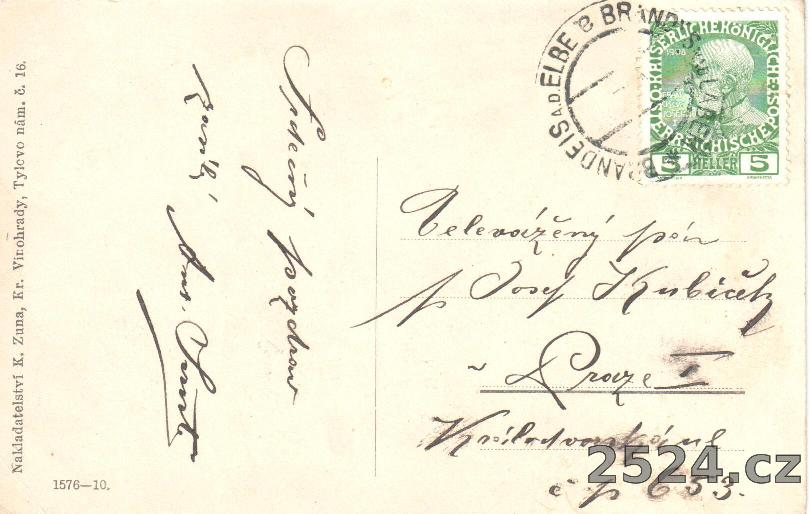 Nakladatelství K. Zuna, Kr. Vinohrady, Tylovo nám. č. 16.
1576—10.
Srdečný pozdrav
zasílá
Ant.
BRANDEIS A.D. ELBE BRANDÝS N. LABEM
1908
KAISERLICHE KÖNIGLICHE ÖSTERREICHISCHE POST
5 HELLER 5
Velevážený pán
p Josef Kubíček
v Praze I
Králodvorská ul
č p 633.
2524.cz